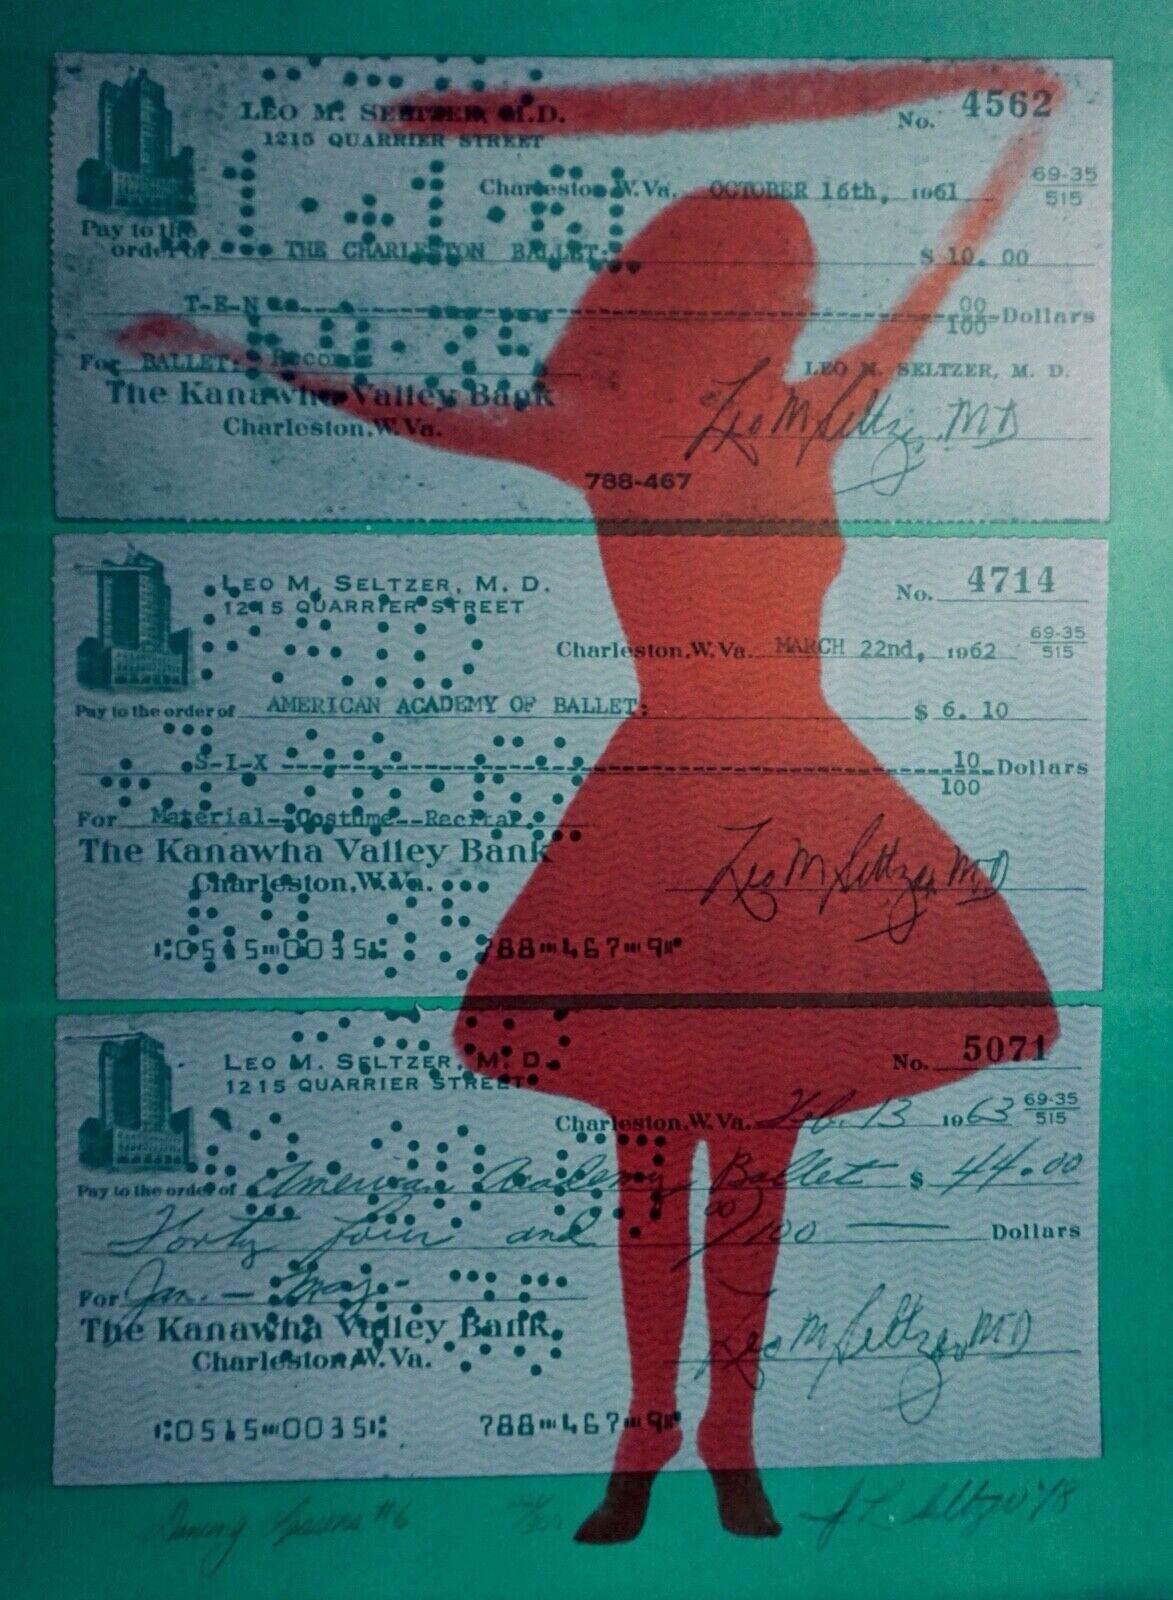 LEO M. SELTZER, M.D.
1215 QUARRIER STREET
No. 4562
Charleston, W.Va. OCTOBER 16th, 1961
69-35
515
Pay to the
order of THE CHARLESTON BALLET: $ 10.00
T-E-N 00/100 Dollars
For BALLET: Records
LEO M. SELTZER, M. D.
The Kanawha Valley Bank
Charleston, W.Va.
Leo M Seltzer, MD
788-467
LEO M. SELTZER, M. D.
1215 QUARRIER STREET
No. 4714
Charleston, W.Va. MARCH 22nd, 1962
69-35
515
Pay to the order of AMERICAN ACADEMY OF BALLET: $ 6.10
S-I-X 10/100 Dollars
For Material--Costume--Recital
The Kanawha Valley Bank
Charleston, W.Va.
Leo M Seltzer M.D
⑆0515⑉0035⑆ 788⑉467⑉9⑈
LEO M. SELTZER, M. D.
1215 QUARRIER STREET
No. 5071
Charleston, W.Va. Feb. 13 1963
69-35
515
Pay to the order of American Academy Ballet $ 44.00
Forty four and 00/100 Dollars
For Jan. - May-
The Kanawha Valley Bank
Charleston, W.Va.
Leo M Seltzer MD
⑆0515⑉0035⑆ 788⑉467⑉9⑈
#6
J L Seltzer '78